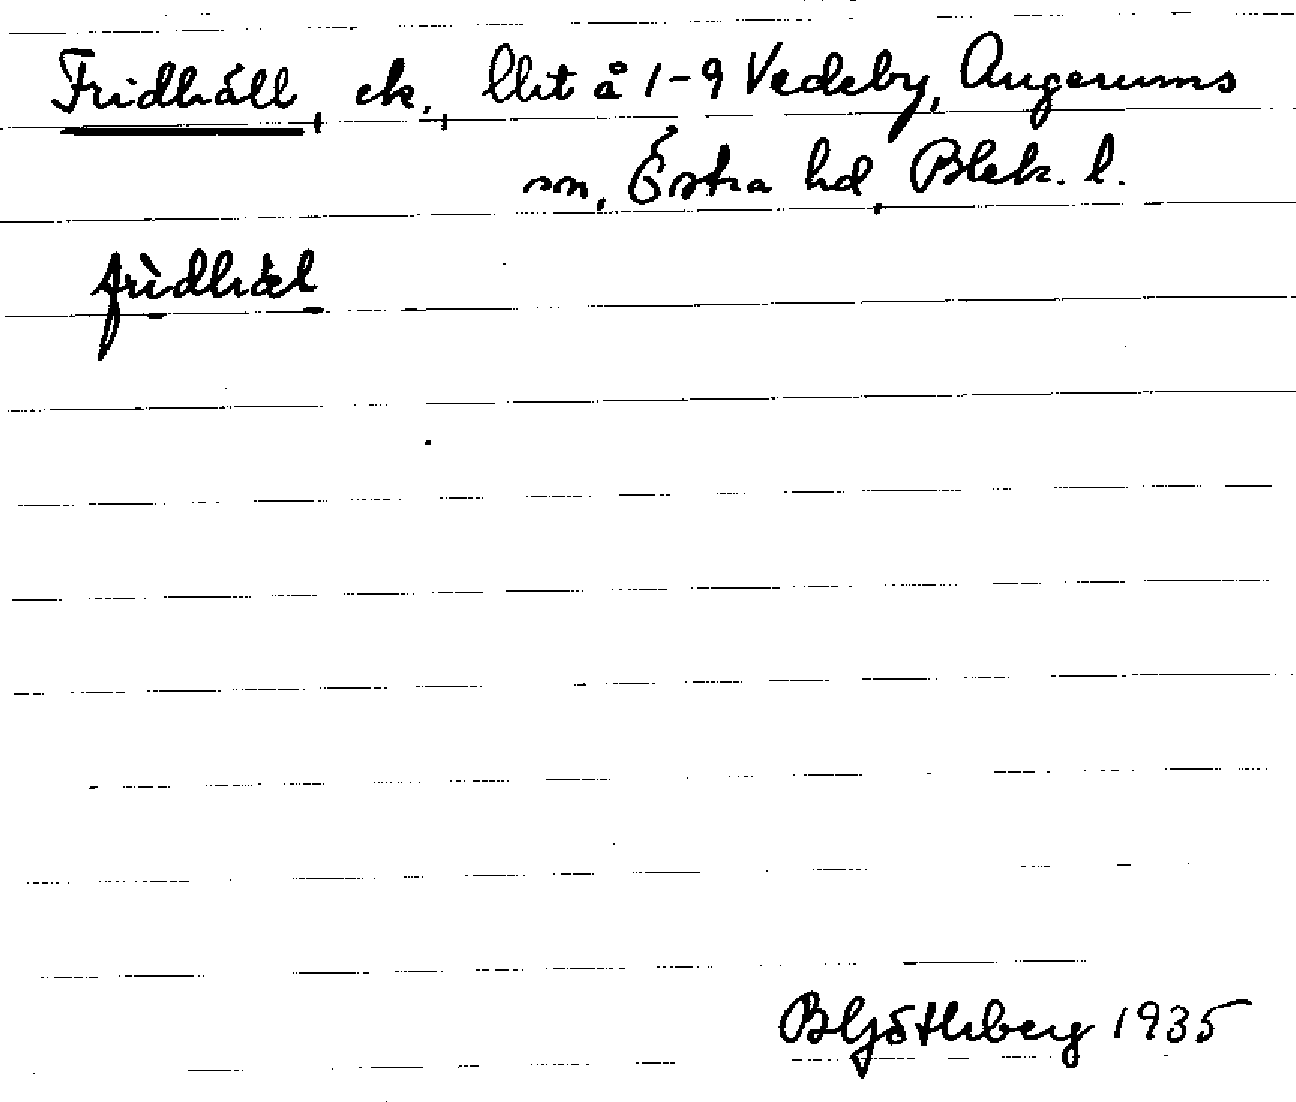 Fridhäll, ek, llit å 1-9 Vedeby, Augerums
sn, Östra hd, Blek. l.
frìdhæl
B Götlberg 1935